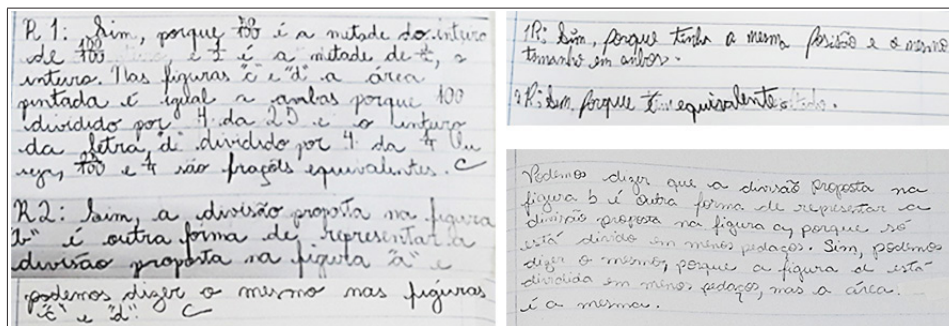 R 1: Sim, porque 50/100 é a metade do inteiro
de 100/100, e 1/2 é a metade de 2/2, o
inteiro. Nas figuras "c" e "d" a área
pintada é igual a ambas porque 100
dividido por 4 da 25 e o inteiro
da letra "d" dividido por 4 da 1/4 Ou
seja, 25/100 e 1/4 são frações equivalentes. C
R2: Sim, a divisão proposta na figura
"b" é outra forma de representar a
divisão proposta na figura "a" e
podemos dizer o mesmo nas figuras
"c" e "d". C
1R: Sim, porque tinha a mesma posisão e o mesmo
tamanho em anbos.
2R: Sim porque é equivalente
Podemos dizer que a divisão proposta na
figura b é outra forma de representar a
divisão proposta na figura a, porque só
está divido em menos pedaços. Sim, podemos
dizer o mesmo, porque a figura d está
dividida em menos pedaços, mas a área
é a mesma.